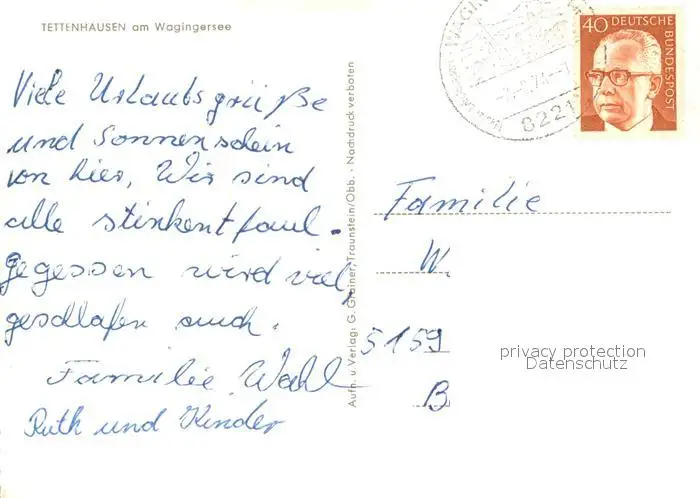 TETTENHAUSEN am Wagingersee
Viele Urlaubsgrüße
und Sonnenschein
von hier, Wir sind
alle stinkent faul.
gegessen wird viel,
geschlafen auch.
Familie Wahl
Ruth und Kinder
Aufn. u. Verlag: G. Grainer, Traunstein/Obb. - Nachdruck verboten
40 DEUTSCHE
BUNDESPOST
8221
Familie
W.
5159
B
privacy protection
Datenschutz